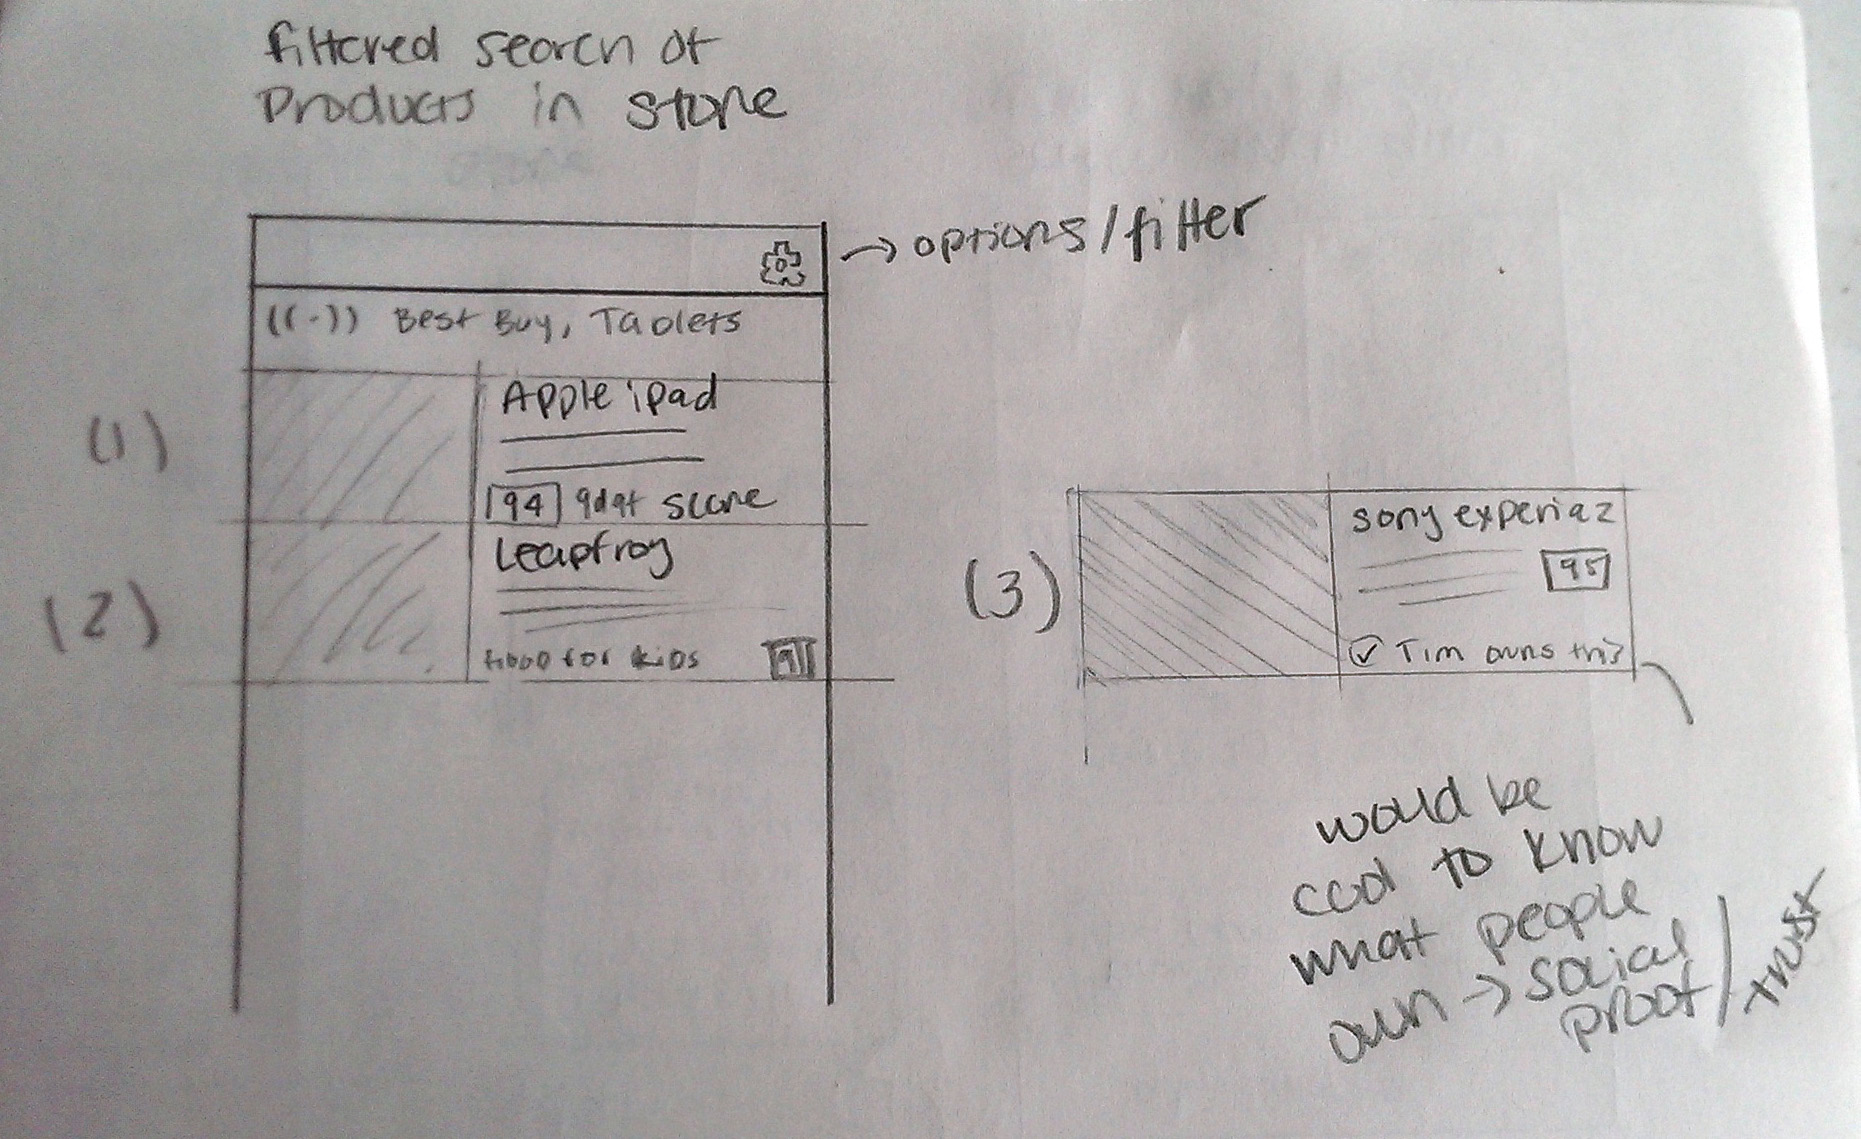 filtered search of
products in store
→ options/filter
((·)) Best Buy, Tablets
(1)
Apple ipad
94 gdgt score
(2)
Leapfrog
good for kids 91
(3)
sony experia z
95
Tim owns this
would be
cool to know
what people
own → social
proof/trust